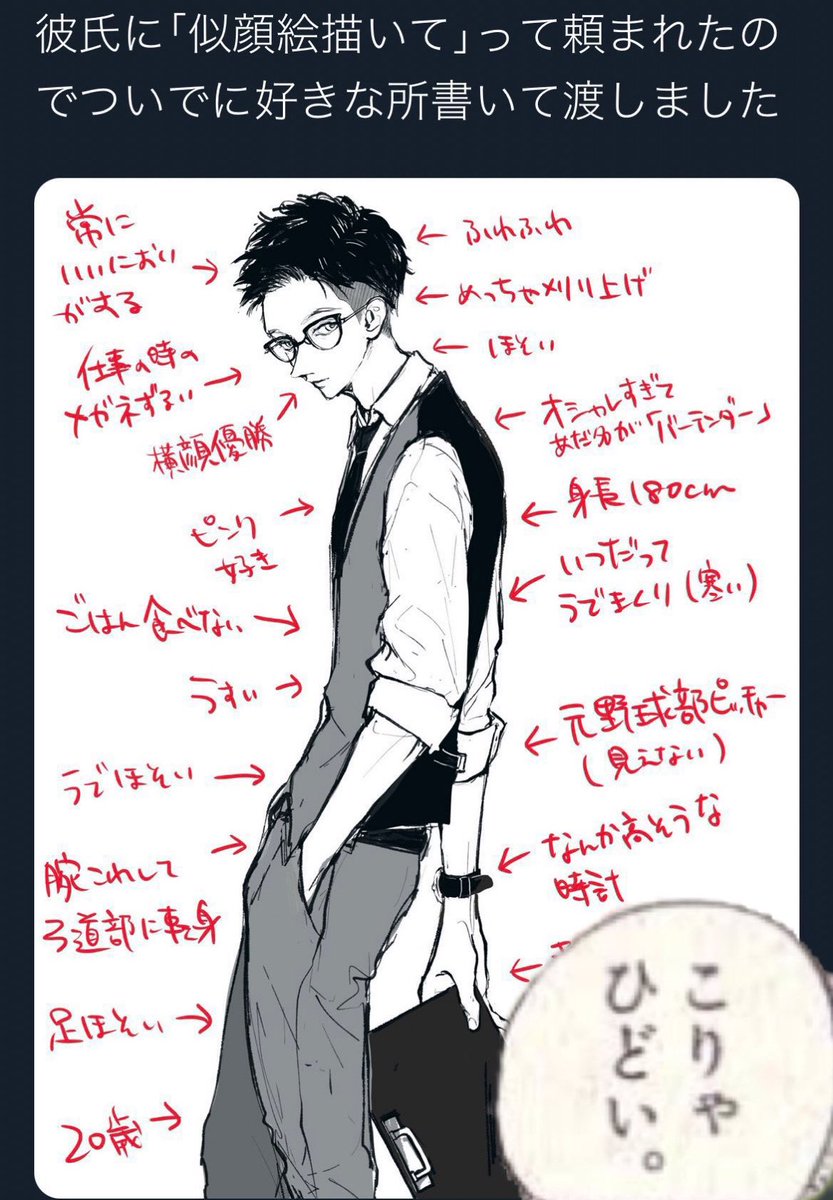 彼氏に「似顔絵描いて」って頼まれたの
でついでに好きな所書いて渡しました
常に
いいにおい
がする
仕事の時の
メガネずるい
横顔優勝
ピンク
好き
ごはん食べない
うすい
うでほそい
腕これして
弓道部に転身
足ほそい
20歳
ふわふわ
めっちゃ刈り上げ
ほそい
オシャレすぎて
あだ名が「バーテンダー」
身長180cm
いつだって
うでまくり(寒い)
元野球部ピッチャー
(見えない)
なんか高そうな
時計
こりゃ
ひどい。